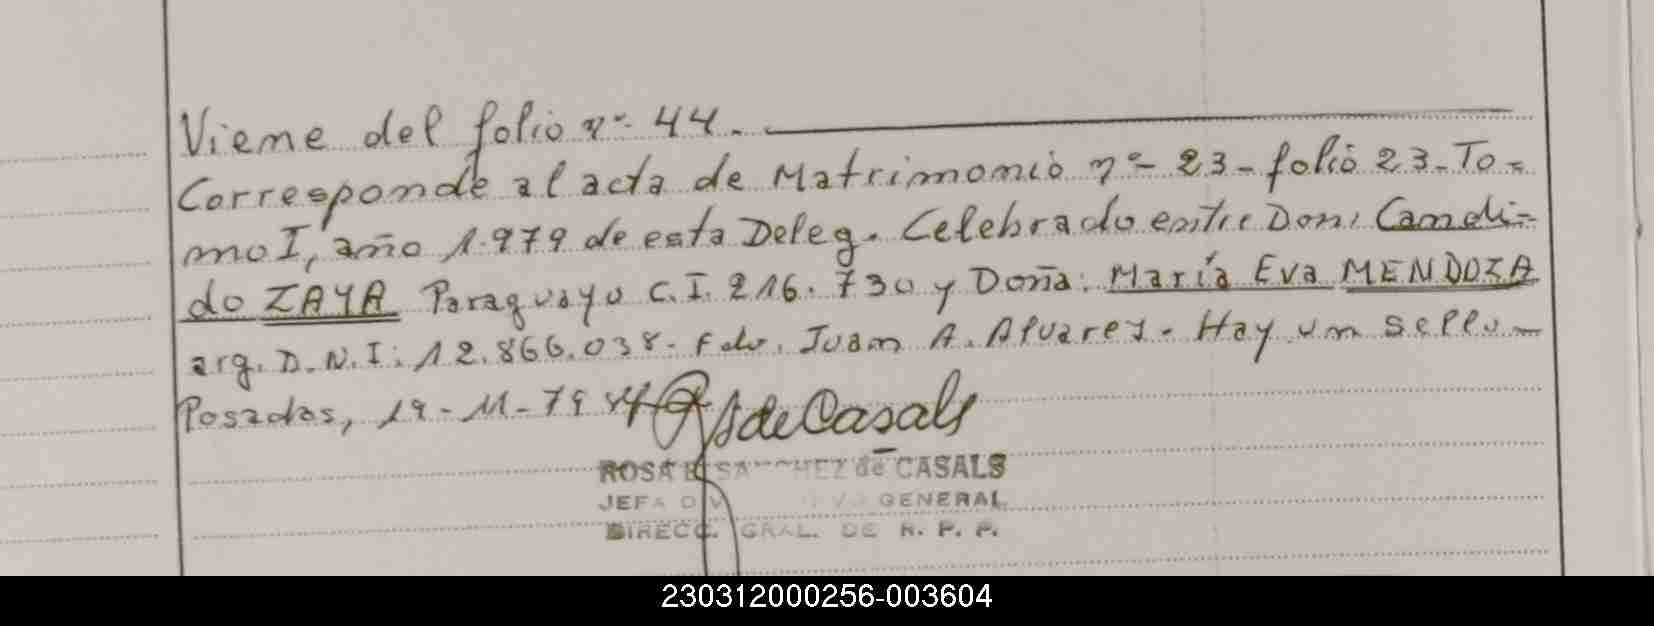 Viene del folio nº 44.
Corresponde al acta de Matrimonio nº 23 - folio 23 - To=
mo I, año 1.979 de esta Deleg. Celebrado entre Don: Candi=
do ZAYA Paraguayo C.I. 216.730 y Doña: María Eva MENDOZA
arg. D.N.I: 12.866.038. Fdo. Juan A. Alvarez. Hay un sello -
Posadas, 19-11-79
de Casals
ROSA E. SANCHEZ de CASALS
JEFA GENERAL
DIRECC. GRAL. DE R. P. P.
230312000256-003604